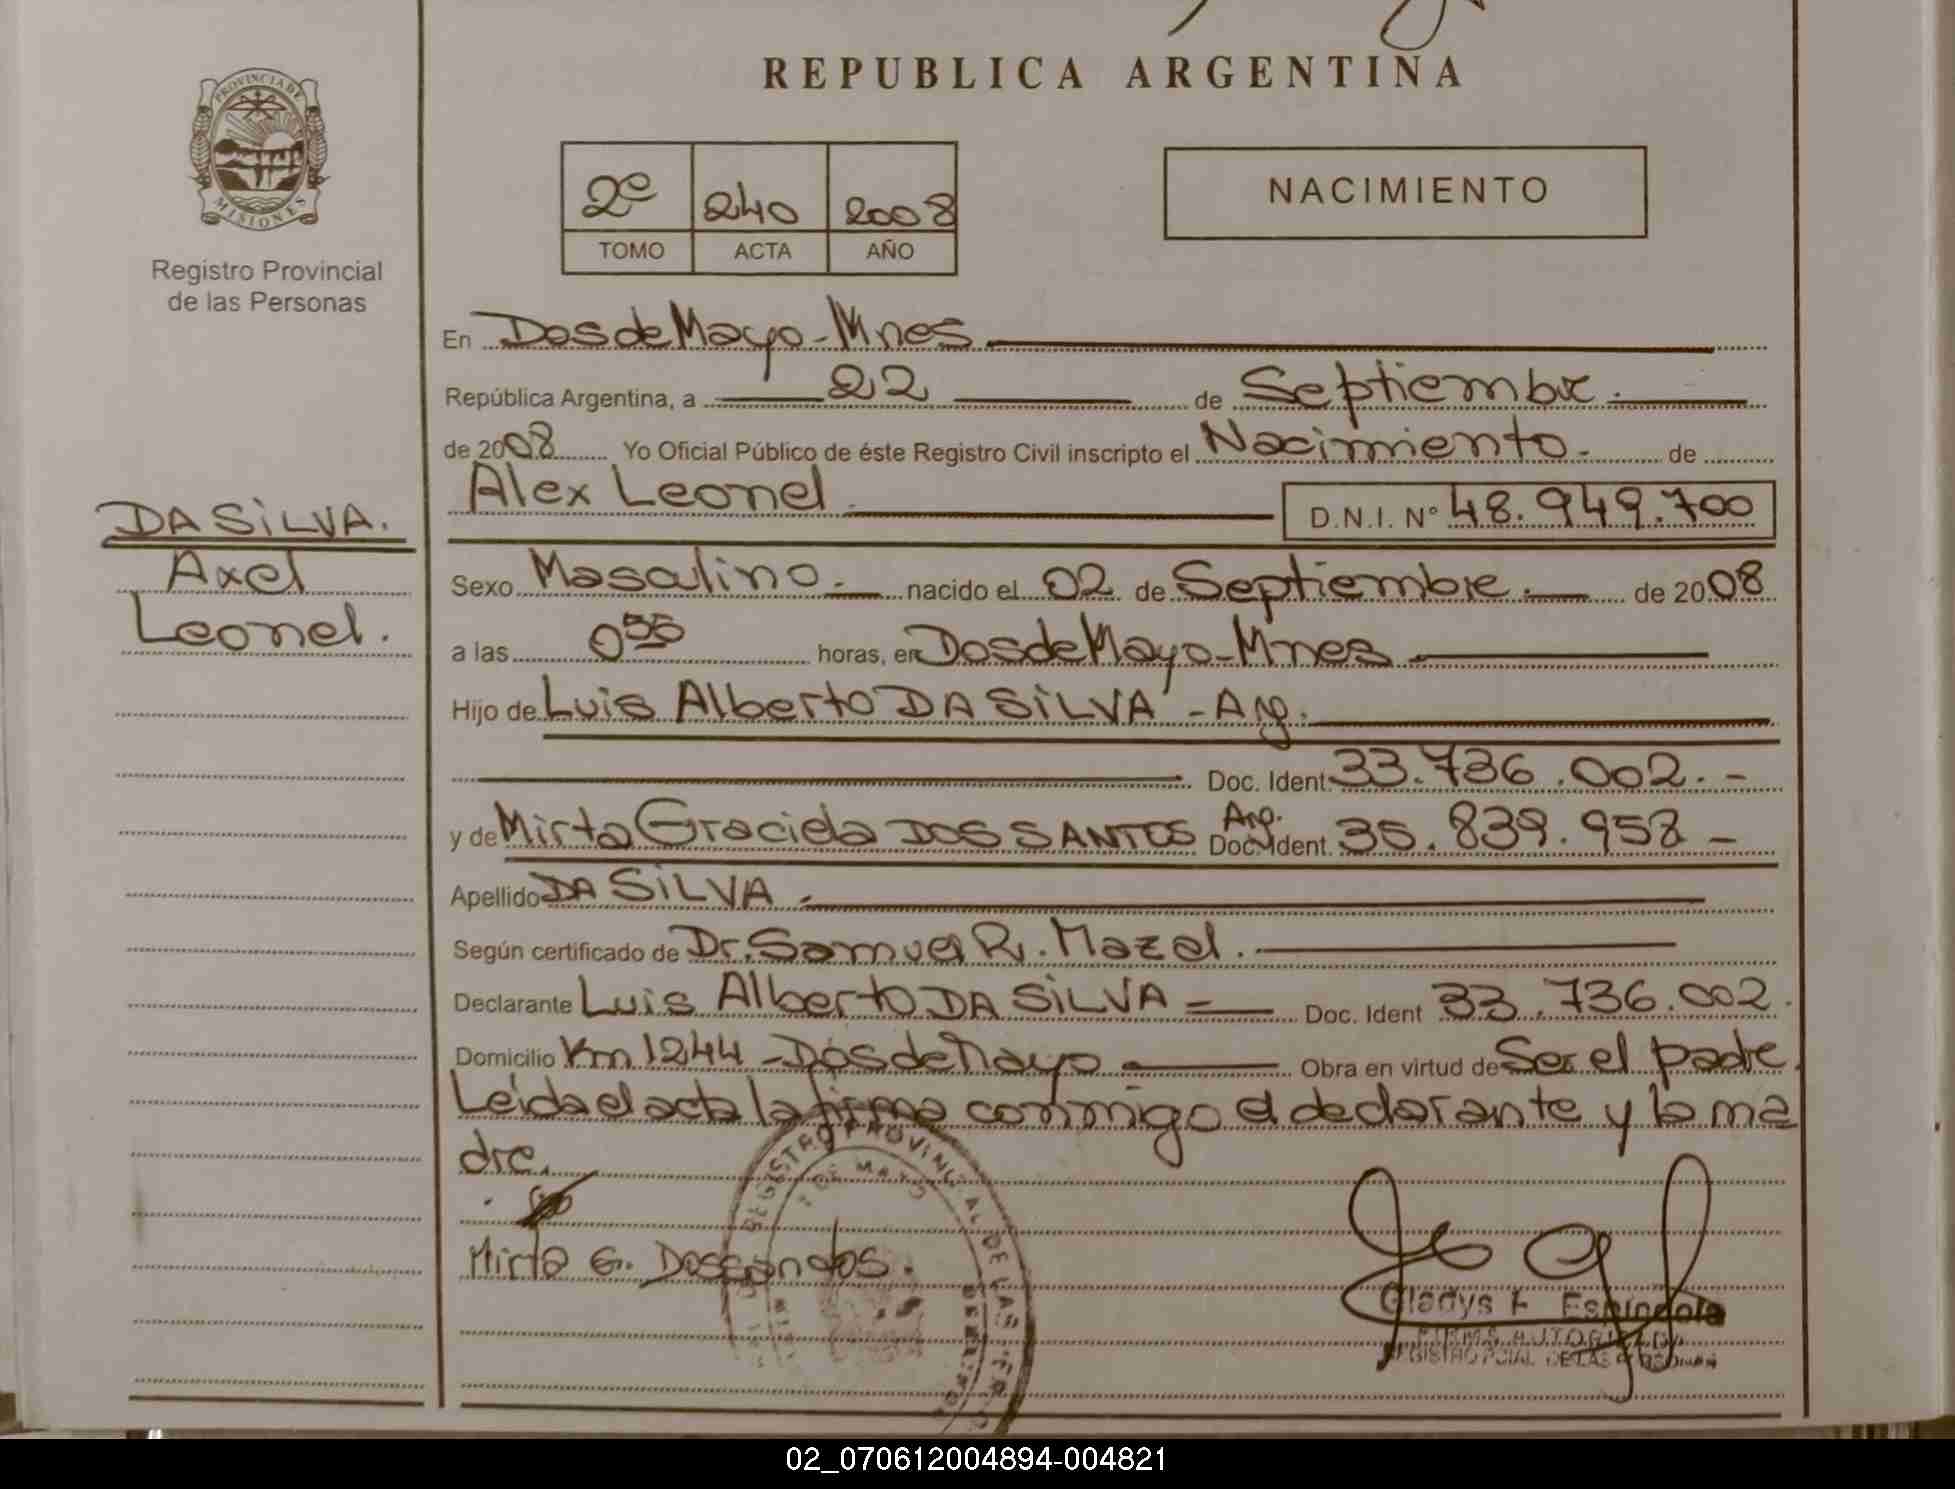 REPUBLICA ARGENTINA
PROVINCIA DE
MISIONES
Registro Provincial
de las Personas
2º 240 2008
TOMO ACTA AÑO
NACIMIENTO
En Dos de Mayo - Mnes
República Argentina, a 22 de Septiembre.
de 2008 Yo Oficial Público de éste Registro Civil inscripto el Nacimiento. de
Alex Leonel D.N.I. Nº 48.949.700
DA SiLVA.
Axel
Leonel.
Sexo Masculino. nacido el 02 de Septiembre. de 2008
a las 0 55 horas, en Dos de Mayo - Mnes
Hijo de Luis Alberto DA SiLVA - Arg.
Doc. Ident. 33.736.002. -
y de Mirta Graciela DOS SANTOS Arg. Doc. Ident. 35.839.958 -
Apellido DA SiLVA.
Según certificado de Dr. Samuel R. Mazal.
Declarante Luis Alberto DA SiLVA = Doc. Ident 33.736.002.
Domicilio Km 1244 - Dos de Mayo Obra en virtud de Ser el padre.
Leida el acta la firma conmigo el declarante y la ma
dre.
REGISTRO PROVINCIAL DE LAS
DE MAYO
Mirta G. Dossandos.
Gladys F. Espíndola
FIRMA AUTORIZADA
REGISTRO PCIAL. DE LAS PERSONAS
02_070612004894-004821